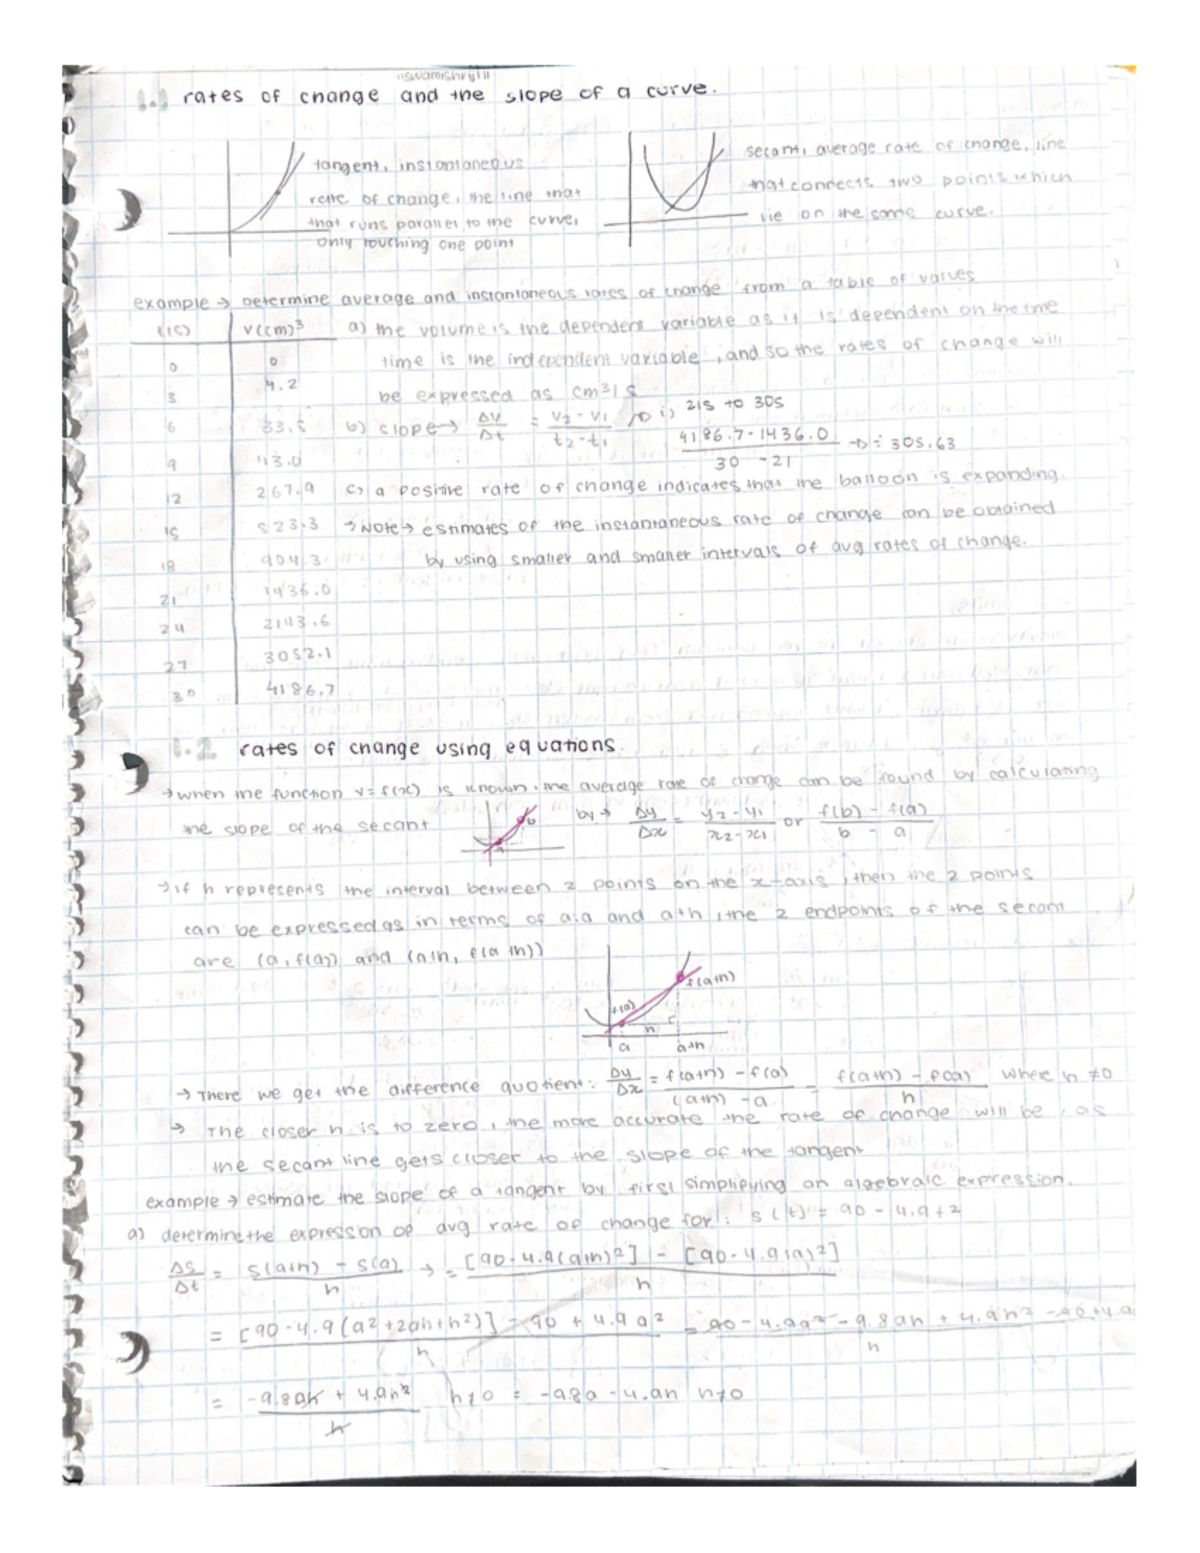 1.1 rates of change and the slope of a curve.
tangent, instantaneous
rate of change, the line that
that runs parallel to the curve,
only touching one point
secant, average rate of change, line
that connects two points which
lie on the same curve.
example → Determine average and instantaneous rates of change from a table of values
t(s) v(cm)³
0 0
3 4.2
6 33.5
9 113.0
12 267.9
15 523.3
18 904.3
21 1436.0
24 2143.6
27 3052.1
30 4186.7
a) the volume is the dependent variable as it is dependent on the time
time is the independent variable, and so the rates of change will
be expressed as cm³/s
b) slope → Δv/Δt = v₂-v₁/t₂-t₁ → i) 21s to 30s
4186.7-1436.0/30-21 → = 305.63
c) a positive rate of change indicates that the balloon is expanding.
→ Note → estimates of the instantaneous rate of change can be obtained
by using smaller and smaller intervals of avg rates of change.
1.2 rates of change using equations.
→ when the function v=f(x) is known, the average rate of change can be found by calculating
the slope of the secant
a b
by → Δy/Δx = y₂-y₁/x₂-x₁ or f(b)-f(a)/b-a
→ if h represents the interval between 2 points on the x-axis, then the 2 points
can be expressed as in terms of a: a and a+h, the 2 endpoints of the secant
are (a, f(a)) and (a+h, f(a+h))
f(a+h)
f(a)
h
a a+h
→ There we get the difference quotient: Δy/Δx = f(a+h)-f(a)/(a+h)-a = f(a+h)-f(a)/h where h≠0
→ The closer h is to zero, the more accurate the rate of change will be, as
the secant line gets closer to the slope of the tangent
example → estimate the slope of a tangent by first simplifying an algebraic expression.
a) determine the expression of avg rate of change for: s(t) = 90-4.9t²
Δs/Δt = s(a+h)-s(a)/h → = [90-4.9(a+h)²]-[90-4.9(a)²]/h
= [90-4.9(a²+2ah+h²)]-90+4.9a²/h = 90-4.9a²-9.8ah+4.9h²-90+4.9a/h
= -9.8ah+4.9h²/h h≠0 = -9.8a-4.9h h≠0